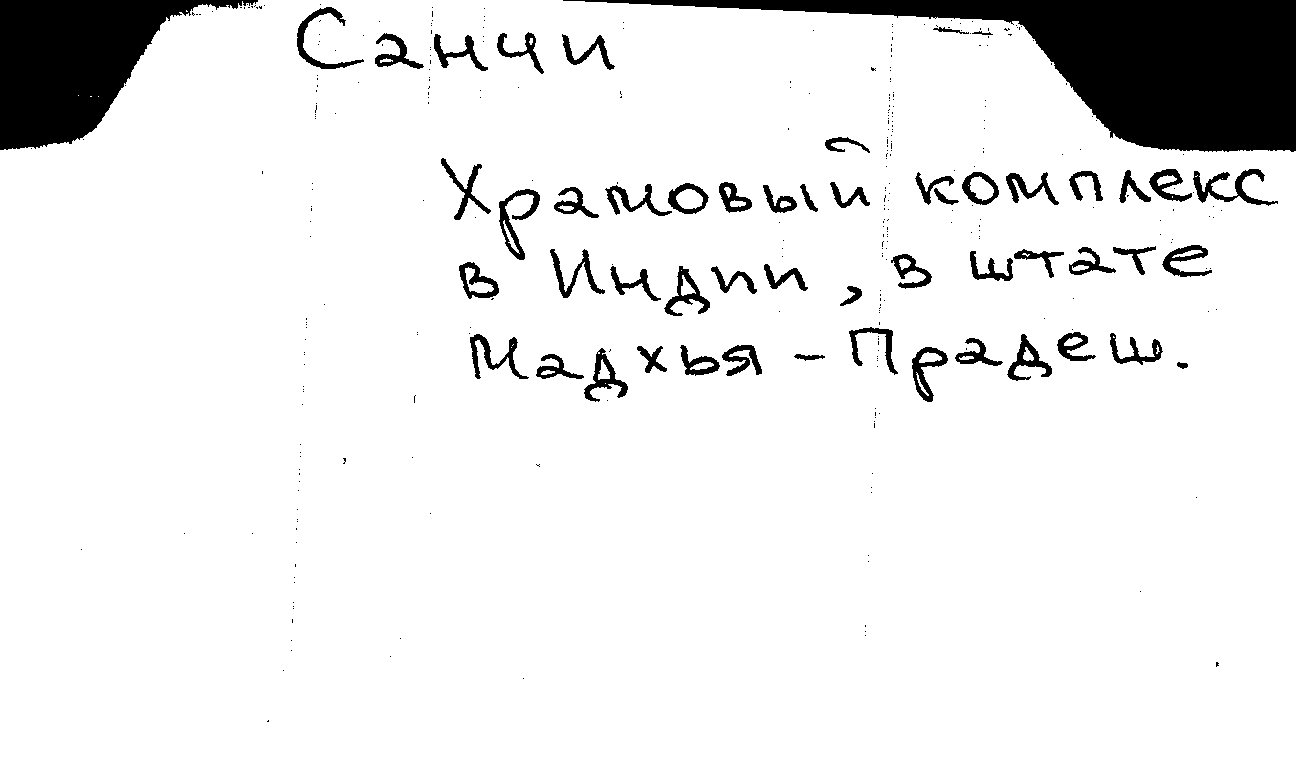 Санчи
Храмовый комплекс
в Индии, в штате
Мадхья - Прадеш.